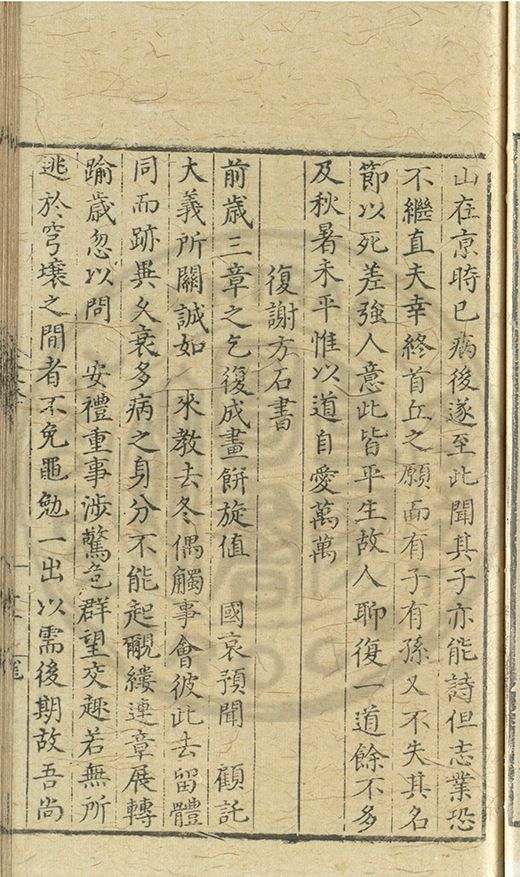 山在京時已病後遂至此聞其子亦能詩但志業恐
不繼直夫幸終首丘之願而有子有孫又不失其名
節以死差強人意此皆平生故人聊復一道餘不多
及秋暑未平惟以道自愛萬萬
復謝方石書
前歲三章之乞復成畫餅旋值　國哀預聞　顧託
大義所關誠如　來教去冬偶觸事會彼此去留體
同而跡異久衰多病之身分不能起覼縷連章展轉
踰歲忽以問　安禮重事涉驚危群望交趣若無所
逃於穹壤之間者不免黽勉一出以需後期故吾尚